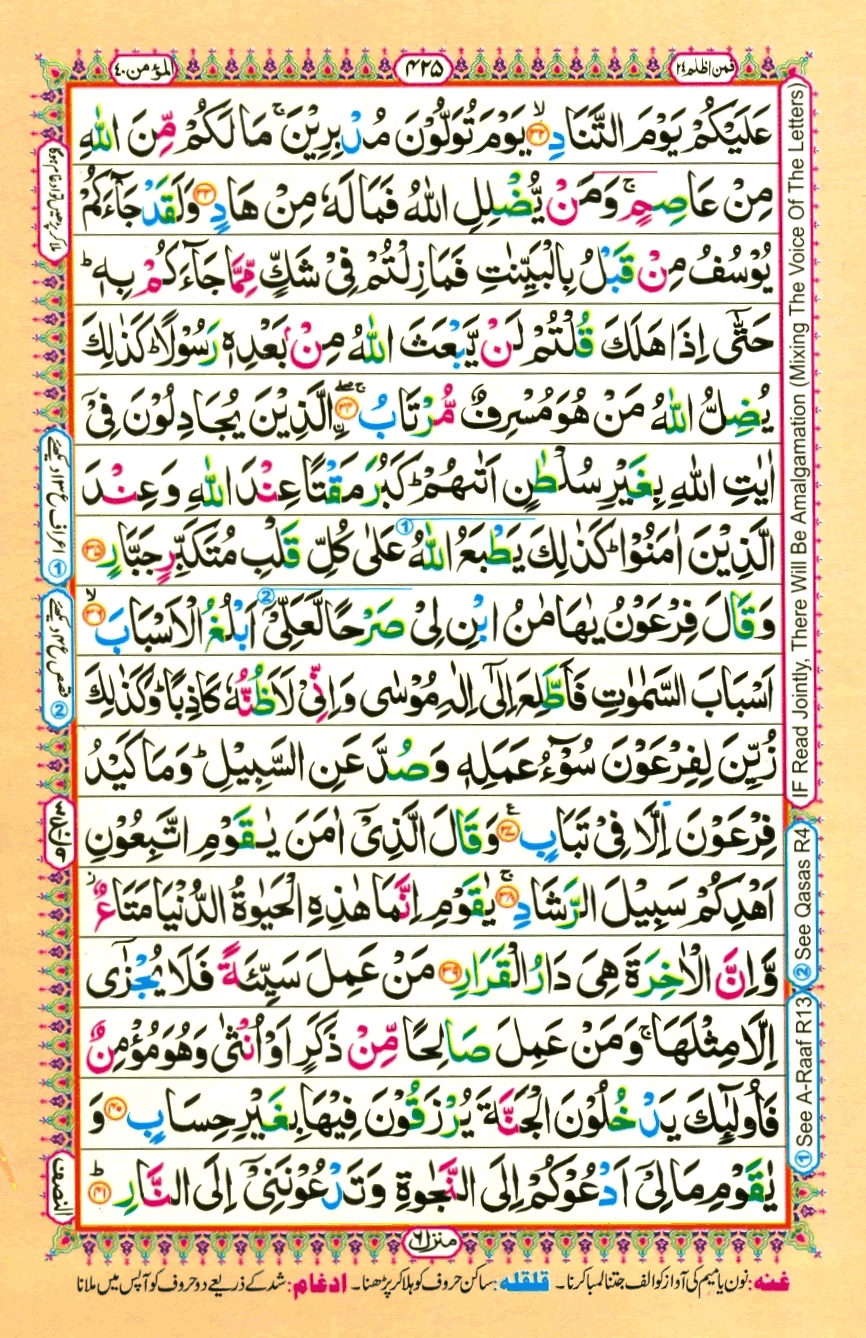 فمن اظلم ٢٤
٤٢٥
المؤمن ٤٠
عَلَيْكُمْ يَوْمَ التَّنَادِ ۙ‏﴿۳۲﴾ يَوْمَ تُوَلُّوْنَ مُدْبِرِيْنَ ۚ مَا لَكُمْ مِّنَ اللّٰهِ
مِنْ عَاصِمٍ ۚ وَمَنْ يُّضْلِلِ اللّٰهُ فَمَا لَهٗ مِنْ هَادٍ ﴿۳۳﴾ وَلَقَدْ جَآءَكُمْ
يُوْسُفُ مِنْ قَبْلُ بِالْبَيِّنٰتِ فَمَا زِلْتُمْ فِىْ شَكٍّ مِّمَّا جَآءَكُمْ بِهٖ ؕ
حَتّٰٓى اِذَا هَلَكَ قُلْتُمْ لَنْ يَّبْعَثَ اللّٰهُ مِنْۢ بَعْدِهٖ رَسُوْلًا ؕ كَذٰلِكَ
يُضِلُّ اللّٰهُ مَنْ هُوَ مُسْرِفٌ مُّرْتَابُ ۚ ۖ ﴿۳۴﴾ ۨالَّذِيْنَ يُجَادِلُوْنَ فِىْٓ
اٰيٰتِ اللّٰهِ بِغَيْرِ سُلْطٰنٍ اَتٰٮهُمْ ؕ كَبُرَ مَقْتًا عِنْدَ اللّٰهِ وَعِنْدَ
الَّذِيْنَ اٰمَنُوْا ؕ كَذٰلِكَ يَطْبَعُ اللّٰهُ ① عَلٰى كُلِّ قَلْبِ مُتَكَبِّرٍ جَبَّارٍ ﴿۳۵﴾
وَقَالَ فِرْعَوْنُ يٰهَامٰنُ ابْنِ لِىْ صَرْحًا ② لَّعَلِّىْۤ اَبْلُغُ الْاَسْبَابَ ۙ ﴿۳۶﴾
اَسْبَابَ السَّمٰوٰتِ فَاَطَّلِعَ اِلٰٓى اِلٰهِ مُوْسٰى وَاِنِّىْ لَاَظُنُّهٗ كَاذِبًا ؕ وَكَذٰلِكَ
زُيِّنَ لِفِرْعَوْنَ سُوْٓءُ عَمَلِهٖ وَصُدَّ عَنِ السَّبِيْلِ ؕ وَمَا كَيْدُ
فِرْعَوْنَ اِلَّا فِىْ تَبَابٍ ﴿۳۷﴾ وَقَالَ الَّذِىْۤ اٰمَنَ يٰقَوْمِ اتَّبِعُوْنِ
اَهْدِكُمْ سَبِيْلَ الرَّشَادِ ۚ ﴿۳۸﴾ يٰقَوْمِ اِنَّمَا هٰذِهِ الْحَيٰوةُ الدُّنْيَا مَتَاعٌ
وَّاِنَّ الْاٰخِرَةَ هِىَ دَارُ الْقَرَارِ ﴿۳۹﴾ مَنْ عَمِلَ سَيِّئَةً فَلَا يُجْزٰٓى
اِلَّا مِثْلَهَا ۚ وَمَنْ عَمِلَ صَالِحًا مِّنْ ذَكَرٍ اَوْ اُنْثٰى وَهُوَ مُؤْمِنٌ
فَاُولٰٓئِكَ يَدْخُلُوْنَ الْجَنَّةَ يُرْزَقُوْنَ فِيْهَا بِغَيْرِ حِسَابٍ ﴿۴۰﴾ وَ
يٰقَوْمِ مَا لِىْۤ اَدْعُوْكُمْ اِلَى النَّجٰوةِ وَتَدْعُوْنَنِىْۤ اِلَى النَّارِ ؕ ﴿۴۱﴾
منزل ٦
غنه: نون یا میم کی آواز کو الف جتنا لمبا کرنا۔ قلقله: ساکن حروف کو ہلا کر پڑھنا۔ ادغام: شد کے ذریعے دو حروف کو آپس میں ملانا
IF Read Jointly, There Will Be Amalgamation (Mixing The Voice Of The Letters)
① See A-Raaf R13 ② See Qasas R4
① اعراف ع ۱۳ دیکھئے
② قصص ع ۴ دیکھئے
النصف